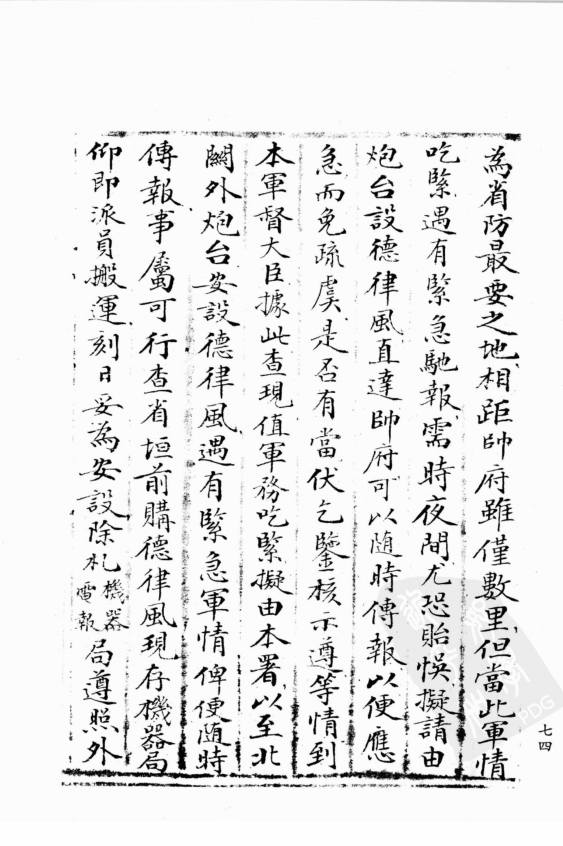 為省防最要之地相距帥府雖僅數里但當此軍情
吃緊遇有緊急馳報需時夜間尤恐貽悞擬請由
炮台設德律風直達帥府可以随時傳報以便應
急而免疏虞是否有當伏乞鑒核示遵等情到
本軍督大臣據此查現值軍務吃緊擬由本署以至北
關外炮台安設德律風遇有緊急軍情俾便随時
傳報事屬可行查省垣前購德律風現存機器局
仰即派員搬運刻日妥為安設除札機器電報局遵照外
七四
PDG